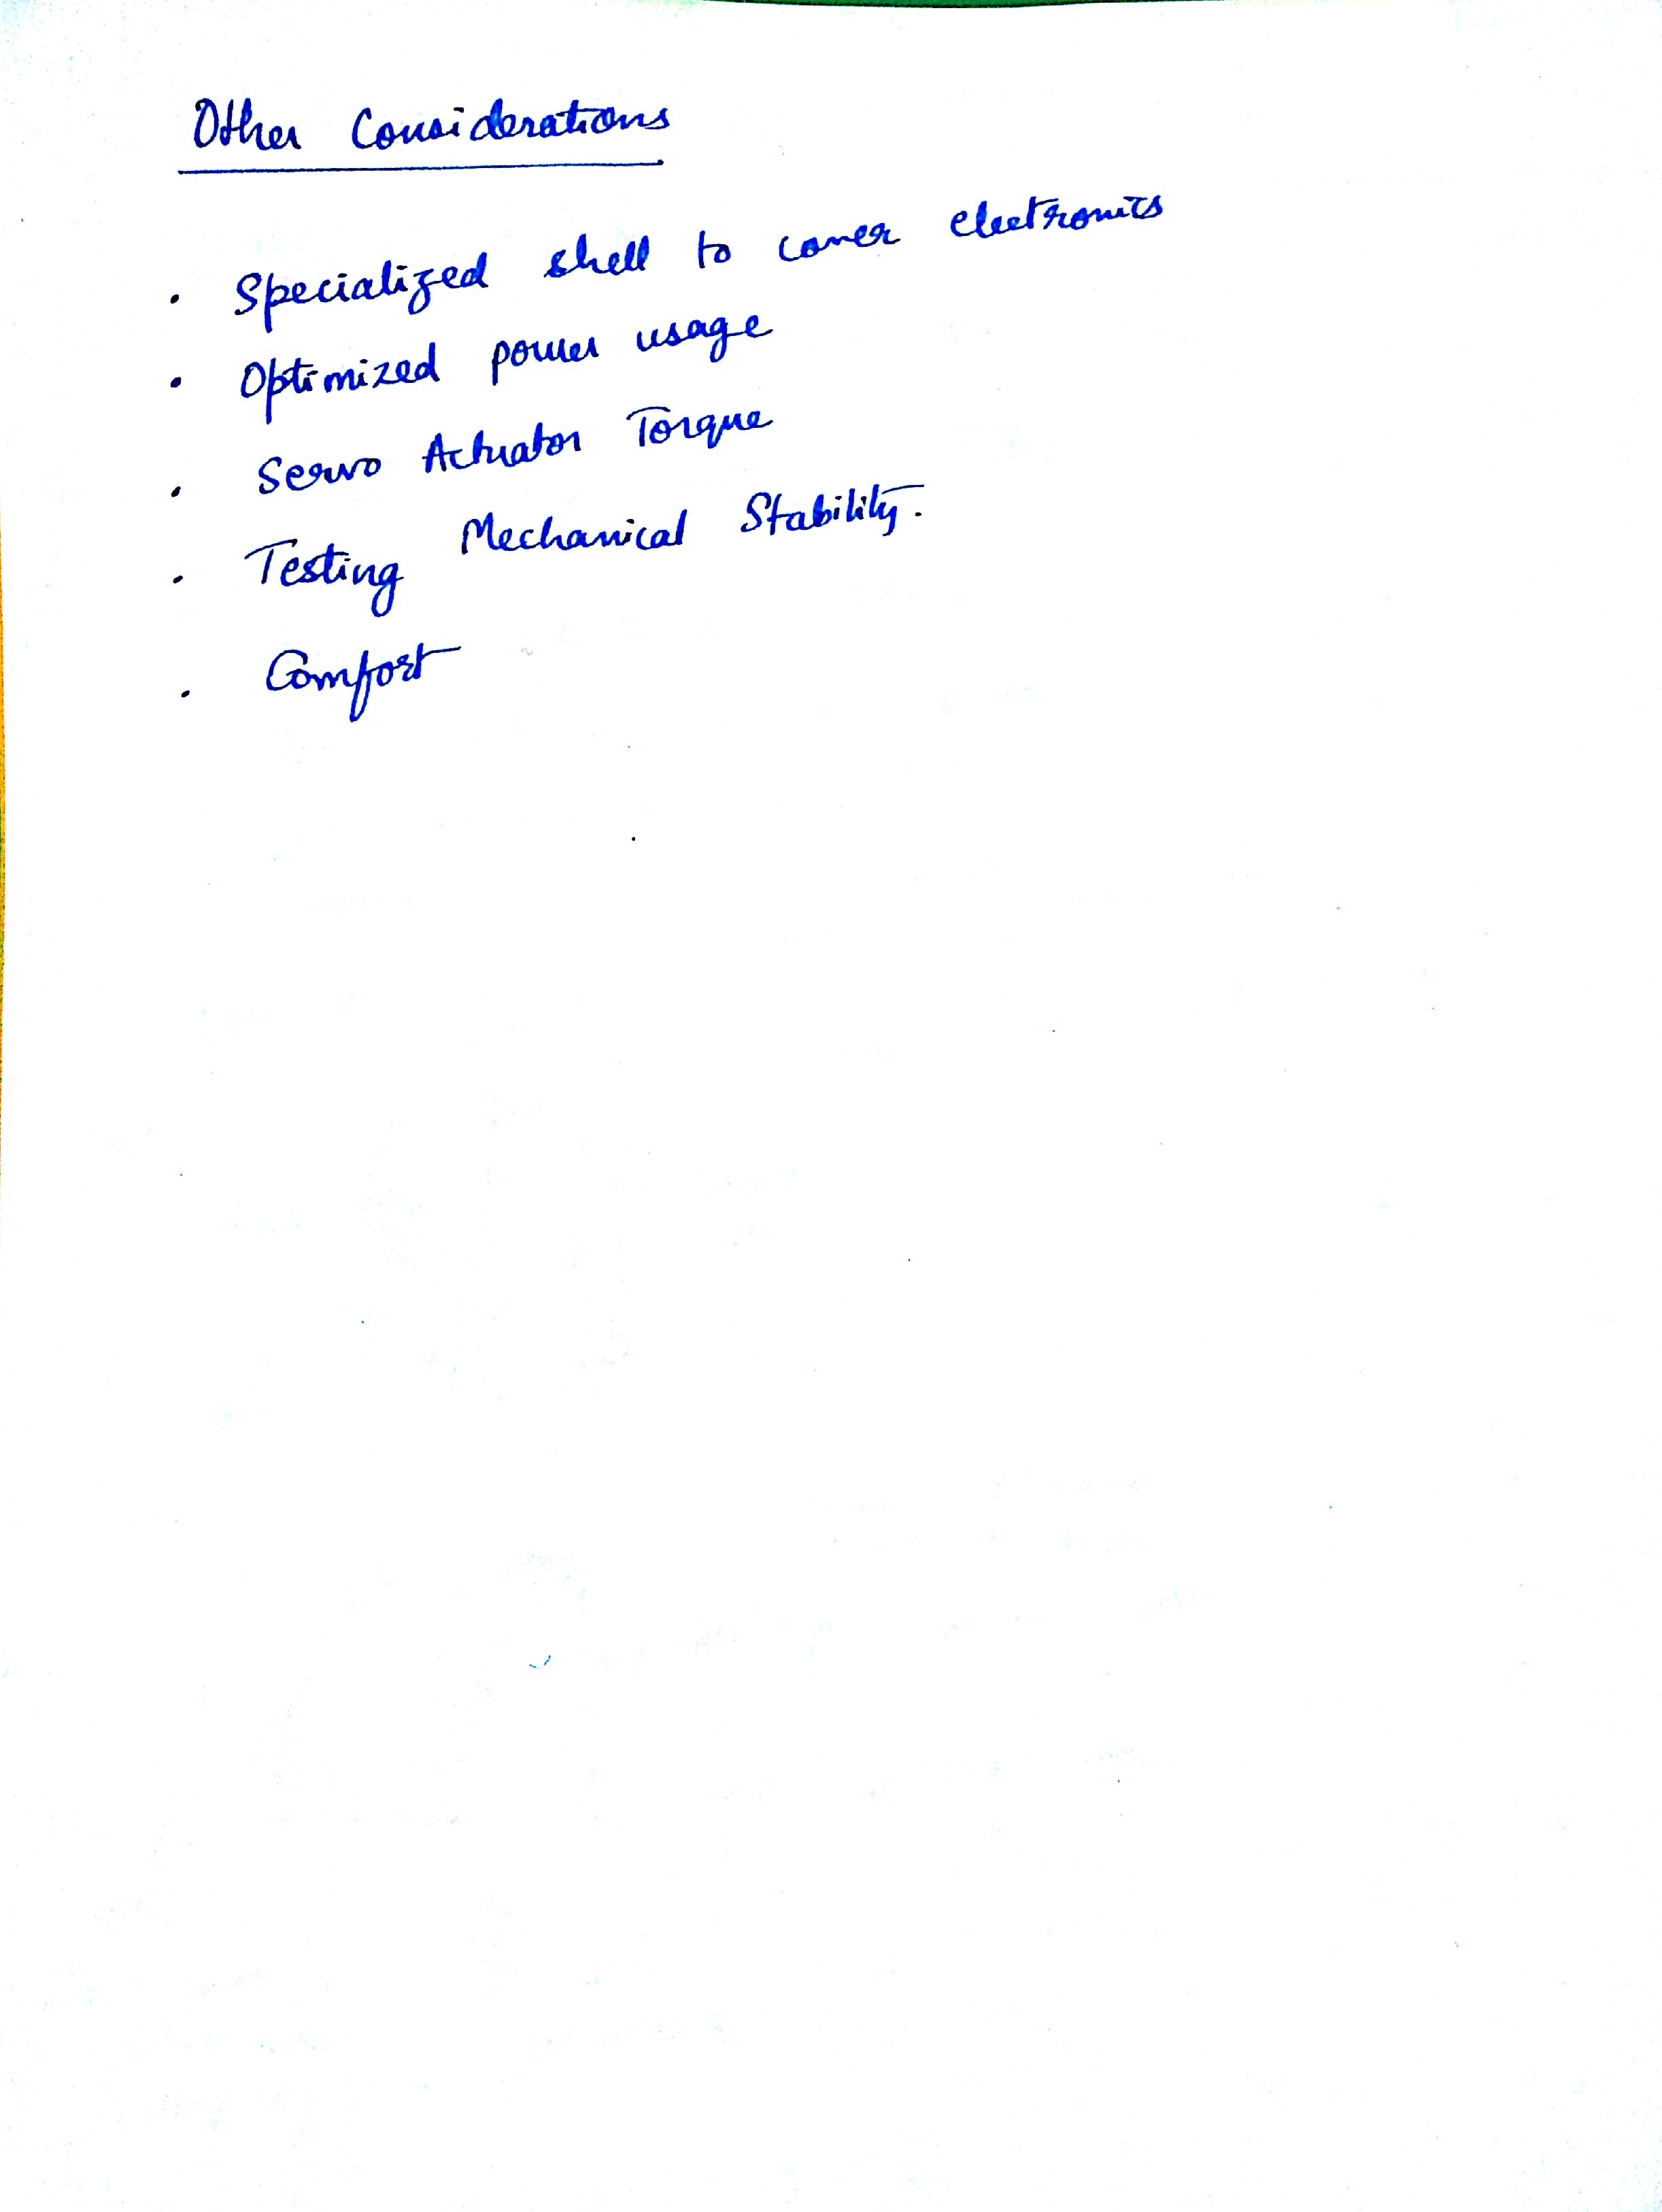 Other Considerations
• Specialized shell to cover electronics
• Optimized power usage
• Servo Actuator Torque
• Testing Mechanical Stability.
• Comfort